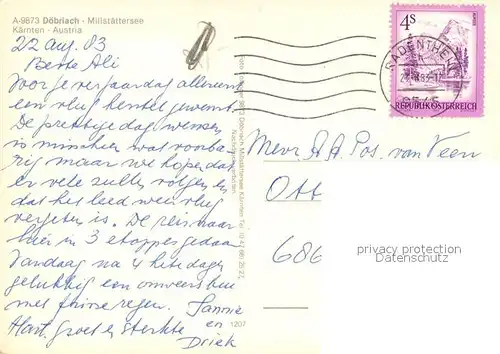 A-9873 Döbriach - Millstättersee
Kärnten - Austria
22 aug. 83
Beste Ali
Voor je verjaardag allereerst
een vlug herstel gewenst.
De prettige dag wensen
is misschien wat voorba-
rig maar we hopen dat
er vele zullen volgen en
dat het leed weer vlug
vergeten is. De reis naar
hier in 3 etappes gedaan
Vandaag na 4 hete dagen
gelukkig een onweersbui
met fijne regen.
Hart. groet en sterkte
Jannie
en
Driek
1207
4S
REPUBLIK ÖSTERREICH
RADENTHEIN
Mevr A.A. Pos. van Veen
Ott
686
privacy protection
Datenschutz